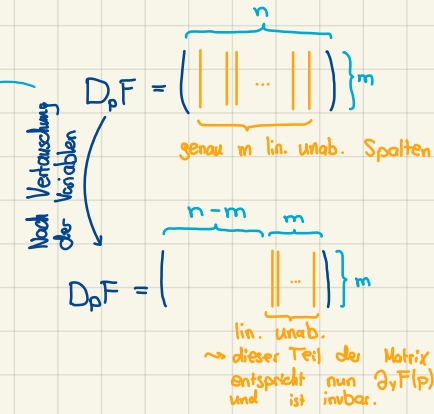 n
D_pF = ( ... ) } m
genau m lin. unab. Spalten
Nach Vertauschung
der Variablen
n-m m
D_pF = ( ... ) } m
lin. unab.
⇝ dieser Teil der Matrix
entspricht nun ∂_yF(p)
und ist invbar.